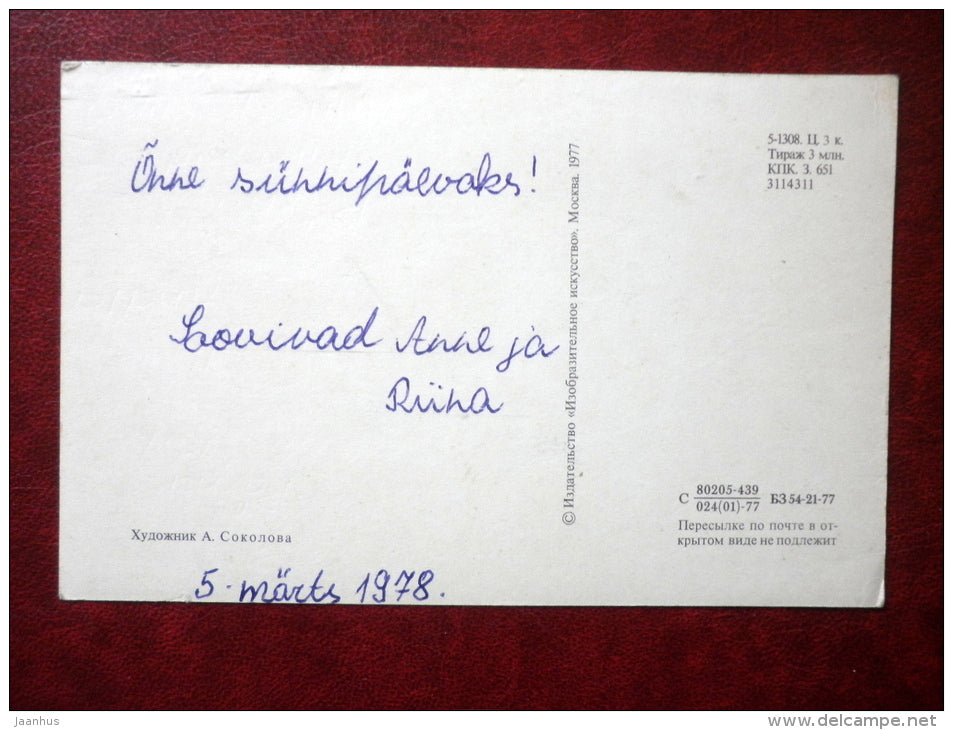 Õnne sünnipäevaks!
Soovivad Anne ja
Riina
Художник А. Соколова
5. märts 1978.
© Издательство «Изобразительное искусство». Москва. 1977
5-1308. Ц. 3 к.
Тираж 3 млн.
КПК. З. 651
3114311
С 80205-439 БЗ 54-21-77
024(01)-77
Пересылке по почте в от-
крытом виде не подлежит
jaanhus
www.delcampe.net